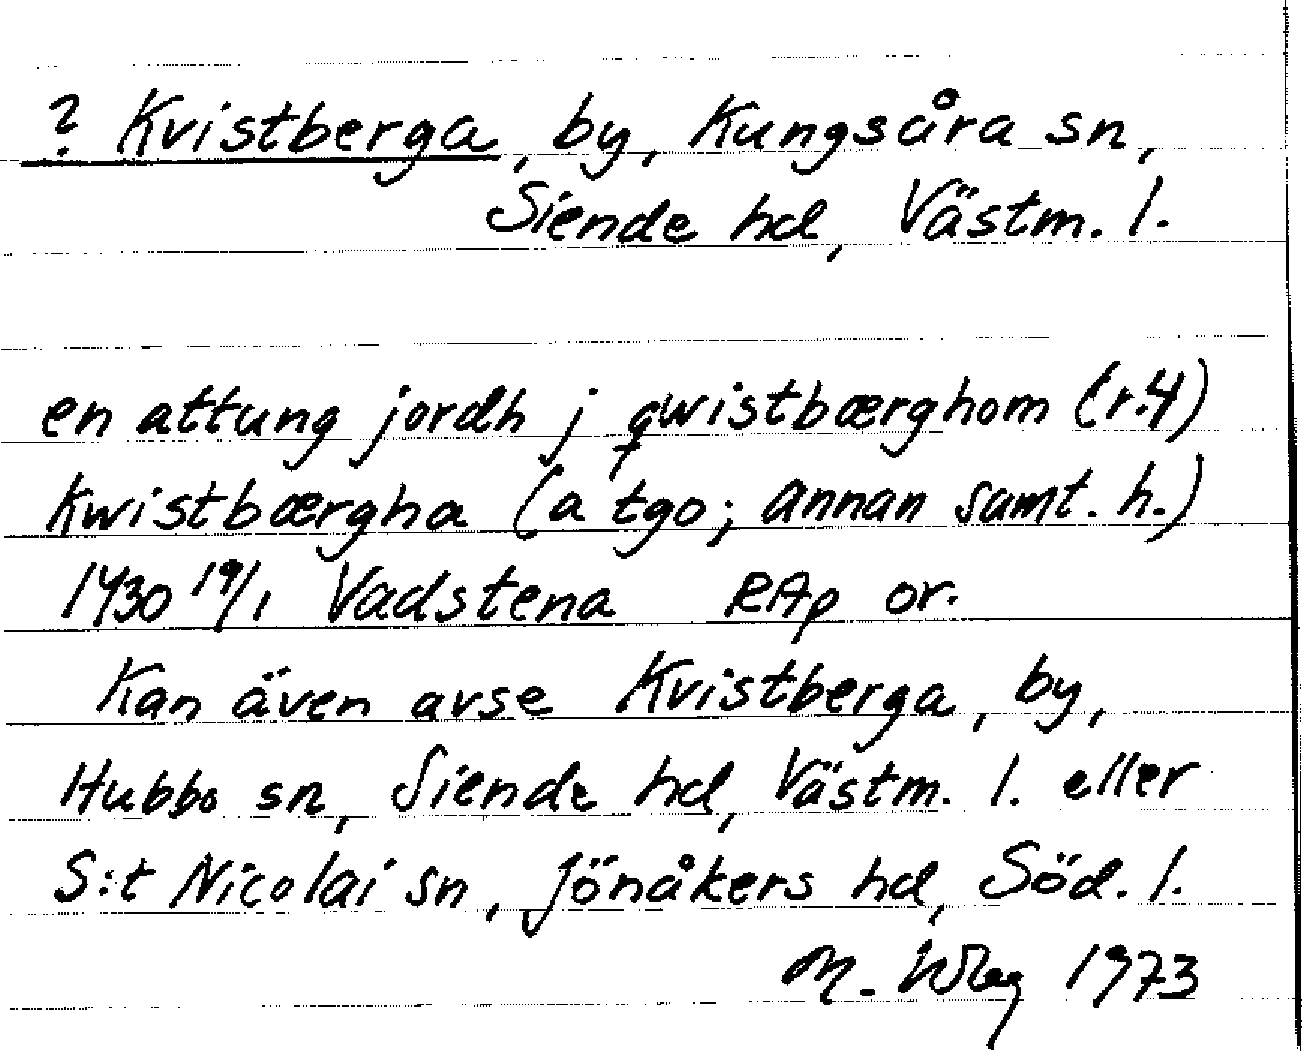 ? Kvistberga, by, Kungsåra sn,
Siende hd, Västm. l.
en attung jordh j qwistbærghom (r.4)
Kwistbærgha (a tgo; annan samt. h.)
1430 19/1 Vadstena RAp or.
Kan även avse Kvistberga, by,
Hubbo sn, Siende hd, Västm. l. eller
S:t Nicolai sn, Jönåkers hd, Söd. l.
M. 1973